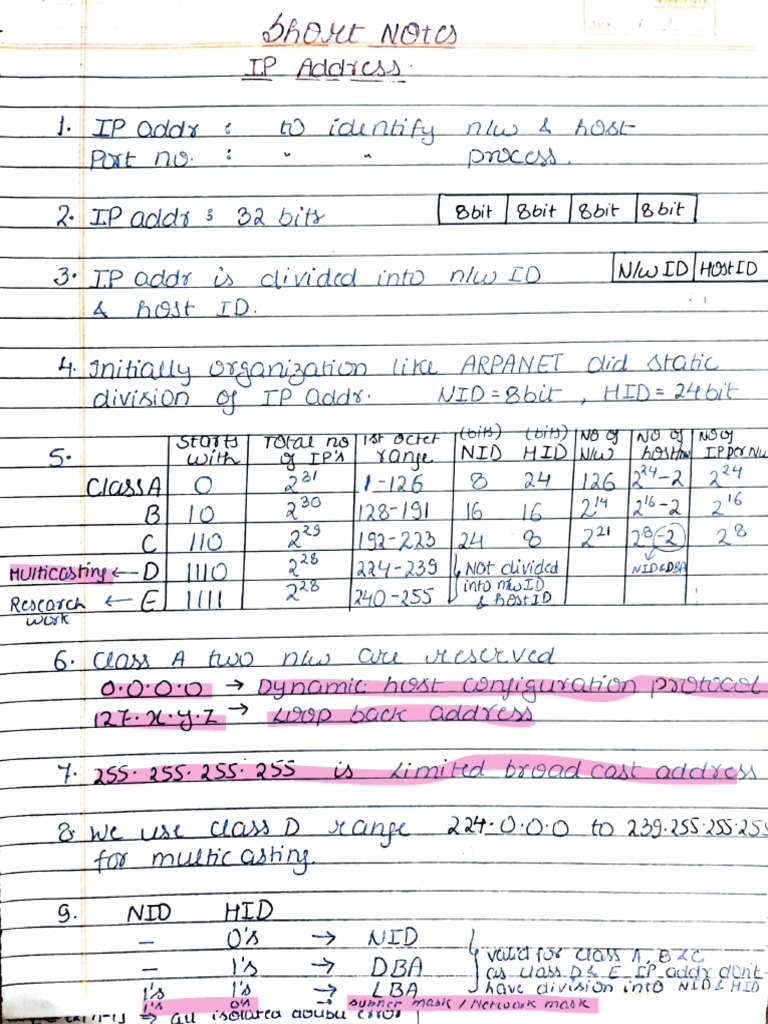 Short Notes
IP Address.
1. IP addr : to identify n/w & host
Port no. : " " process.
2. IP addr : 32 bits 8bit 8bit 8bit 8bit
3. IP addr is divided into n/w ID N/w ID HOST ID
& host ID.
4. Initially organization like ARPANET did static
division of IP Addr. NID = 8bit , HID = 24bit
5. Starts with Total no of IP's 1st octet range (bits) NID (bits) HID NO of N/w NO of host/nw NO of IP per N/w
Class A 0 2^31 1-126 8 24 126 2^24-2 2^24
B 10 2^30 128-191 16 16 2^14 2^16-2 2^16
C 110 2^29 192-223 24 8 2^21 2^8-2 2^8
Multicasting ← D 1110 2^28 224-239 Not divided into n/w ID & host ID NID & DBA
Research work ← E 1111 2^28 240-255
6. Class A two n/w are reserved
0.0.0.0 → Dynamic host configuration protocol
127.x.y.z → Loop back address
7. 255.255.255.255 is Limited broad cast address
8. We use class D range 224.0.0.0 to 239.255.255.255
for multicasting.
9. NID HID
– 0's → NID
– 1's → DBA
1's 1's → LBA
valid for class A, B & C
as class D & E IP addr don't
have division into NID & HID
1's 0's → subnet mask / Network mask
⇒ all isolated double error